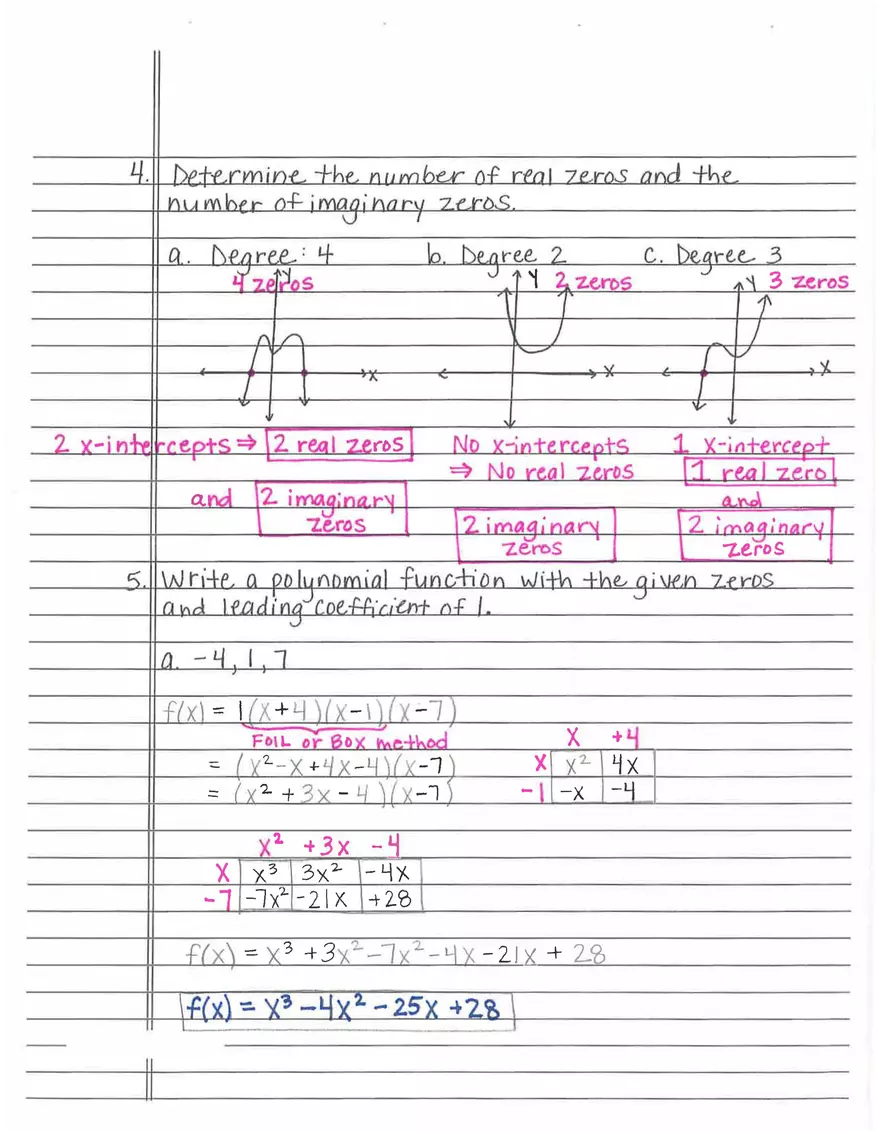 4. Determine the number of real zeros and the
number of imaginary zeros.
a. Degree: 4 b. Degree 2 c. Degree 3
4 zeros y y 2 zeros y 3 zeros
x x x
2 x-intercepts ⇒ 2 real zeros No x-intercepts 1 x-intercept
⇒ No real zeros 1 real zero
and 2 imaginary and
zeros 2 imaginary 2 imaginary
zeros zeros
5. Write a polynomial function with the given zeros
and leading coefficient of 1.
a. -4, 1, 7
f(x) = 1(x+4)(x-1)(x-7)
FOIL or Box method x +4
= (x²-x+4x-4)(x-7) x x² 4x
= (x² +3x - 4)(x-7) -1 -x -4
x² +3x -4
x x³ 3x² -4x
-7 -7x² -21x +28
f(x) = x³ +3x²-7x²-4x-21x + 28
f(x) = x³ -4x² - 25x +28